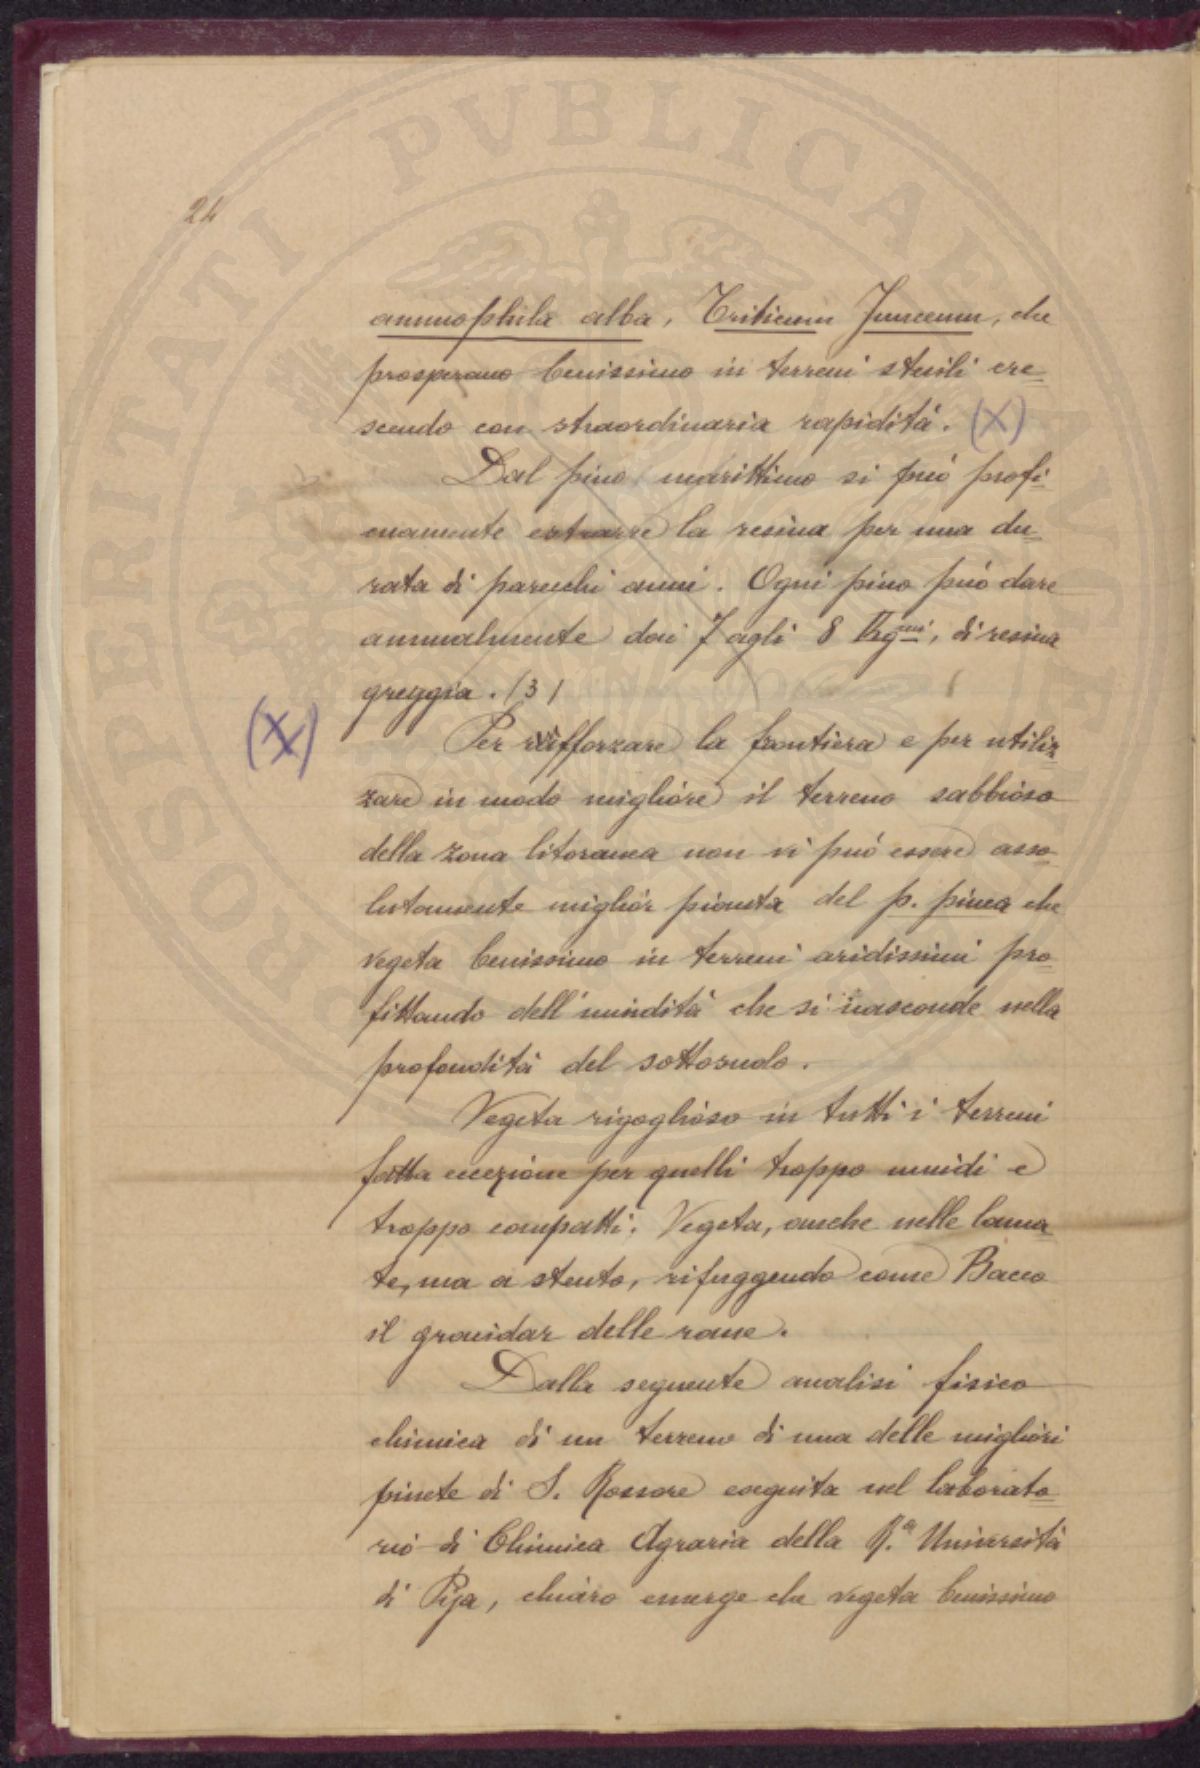 24
ammophila alba, Triticum Junceum, che
prosperano benissimo in terreni sterili cre-
scendo con straordinaria rapidità. (X)
Dal pino marittimo si può profi-
cuamente estrarre la resina per una du-
rata di parecchi anni. Ogni pino può dare
annualmente dai 7 agli 8 Kgmi, di resina
greggia. (3)
(X)
Per rafforzare la frontiera e per utiliz-
zare in modo migliore il terreno sabbioso
della zona litoranea non vi può essere asso-
lutamente miglior pianta del p. pinea che
vegeta benissimo in terreni aridissimi pro-
fittando dell'umidità che si nasconde nella
profondità del sottosuolo.
Vegeta rigoglioso in tutti i terreni
fatta eccezione per quelli troppo umidi e
troppo compatti. Vegeta, anche nelle lama-
te, ma a stento, rifuggendo come Bacco
il gracidar delle rane.
Dalla seguente analisi fisico
chimica di un terreno di una delle migliori
pinete di S. Rossore eseguita nel laborato-
rio di Chimica Agraria della R.a Università
di Pisa, chiaro emerge che vegeta benissimo
PROSPERITATI PUBLICAE AUGENDAE